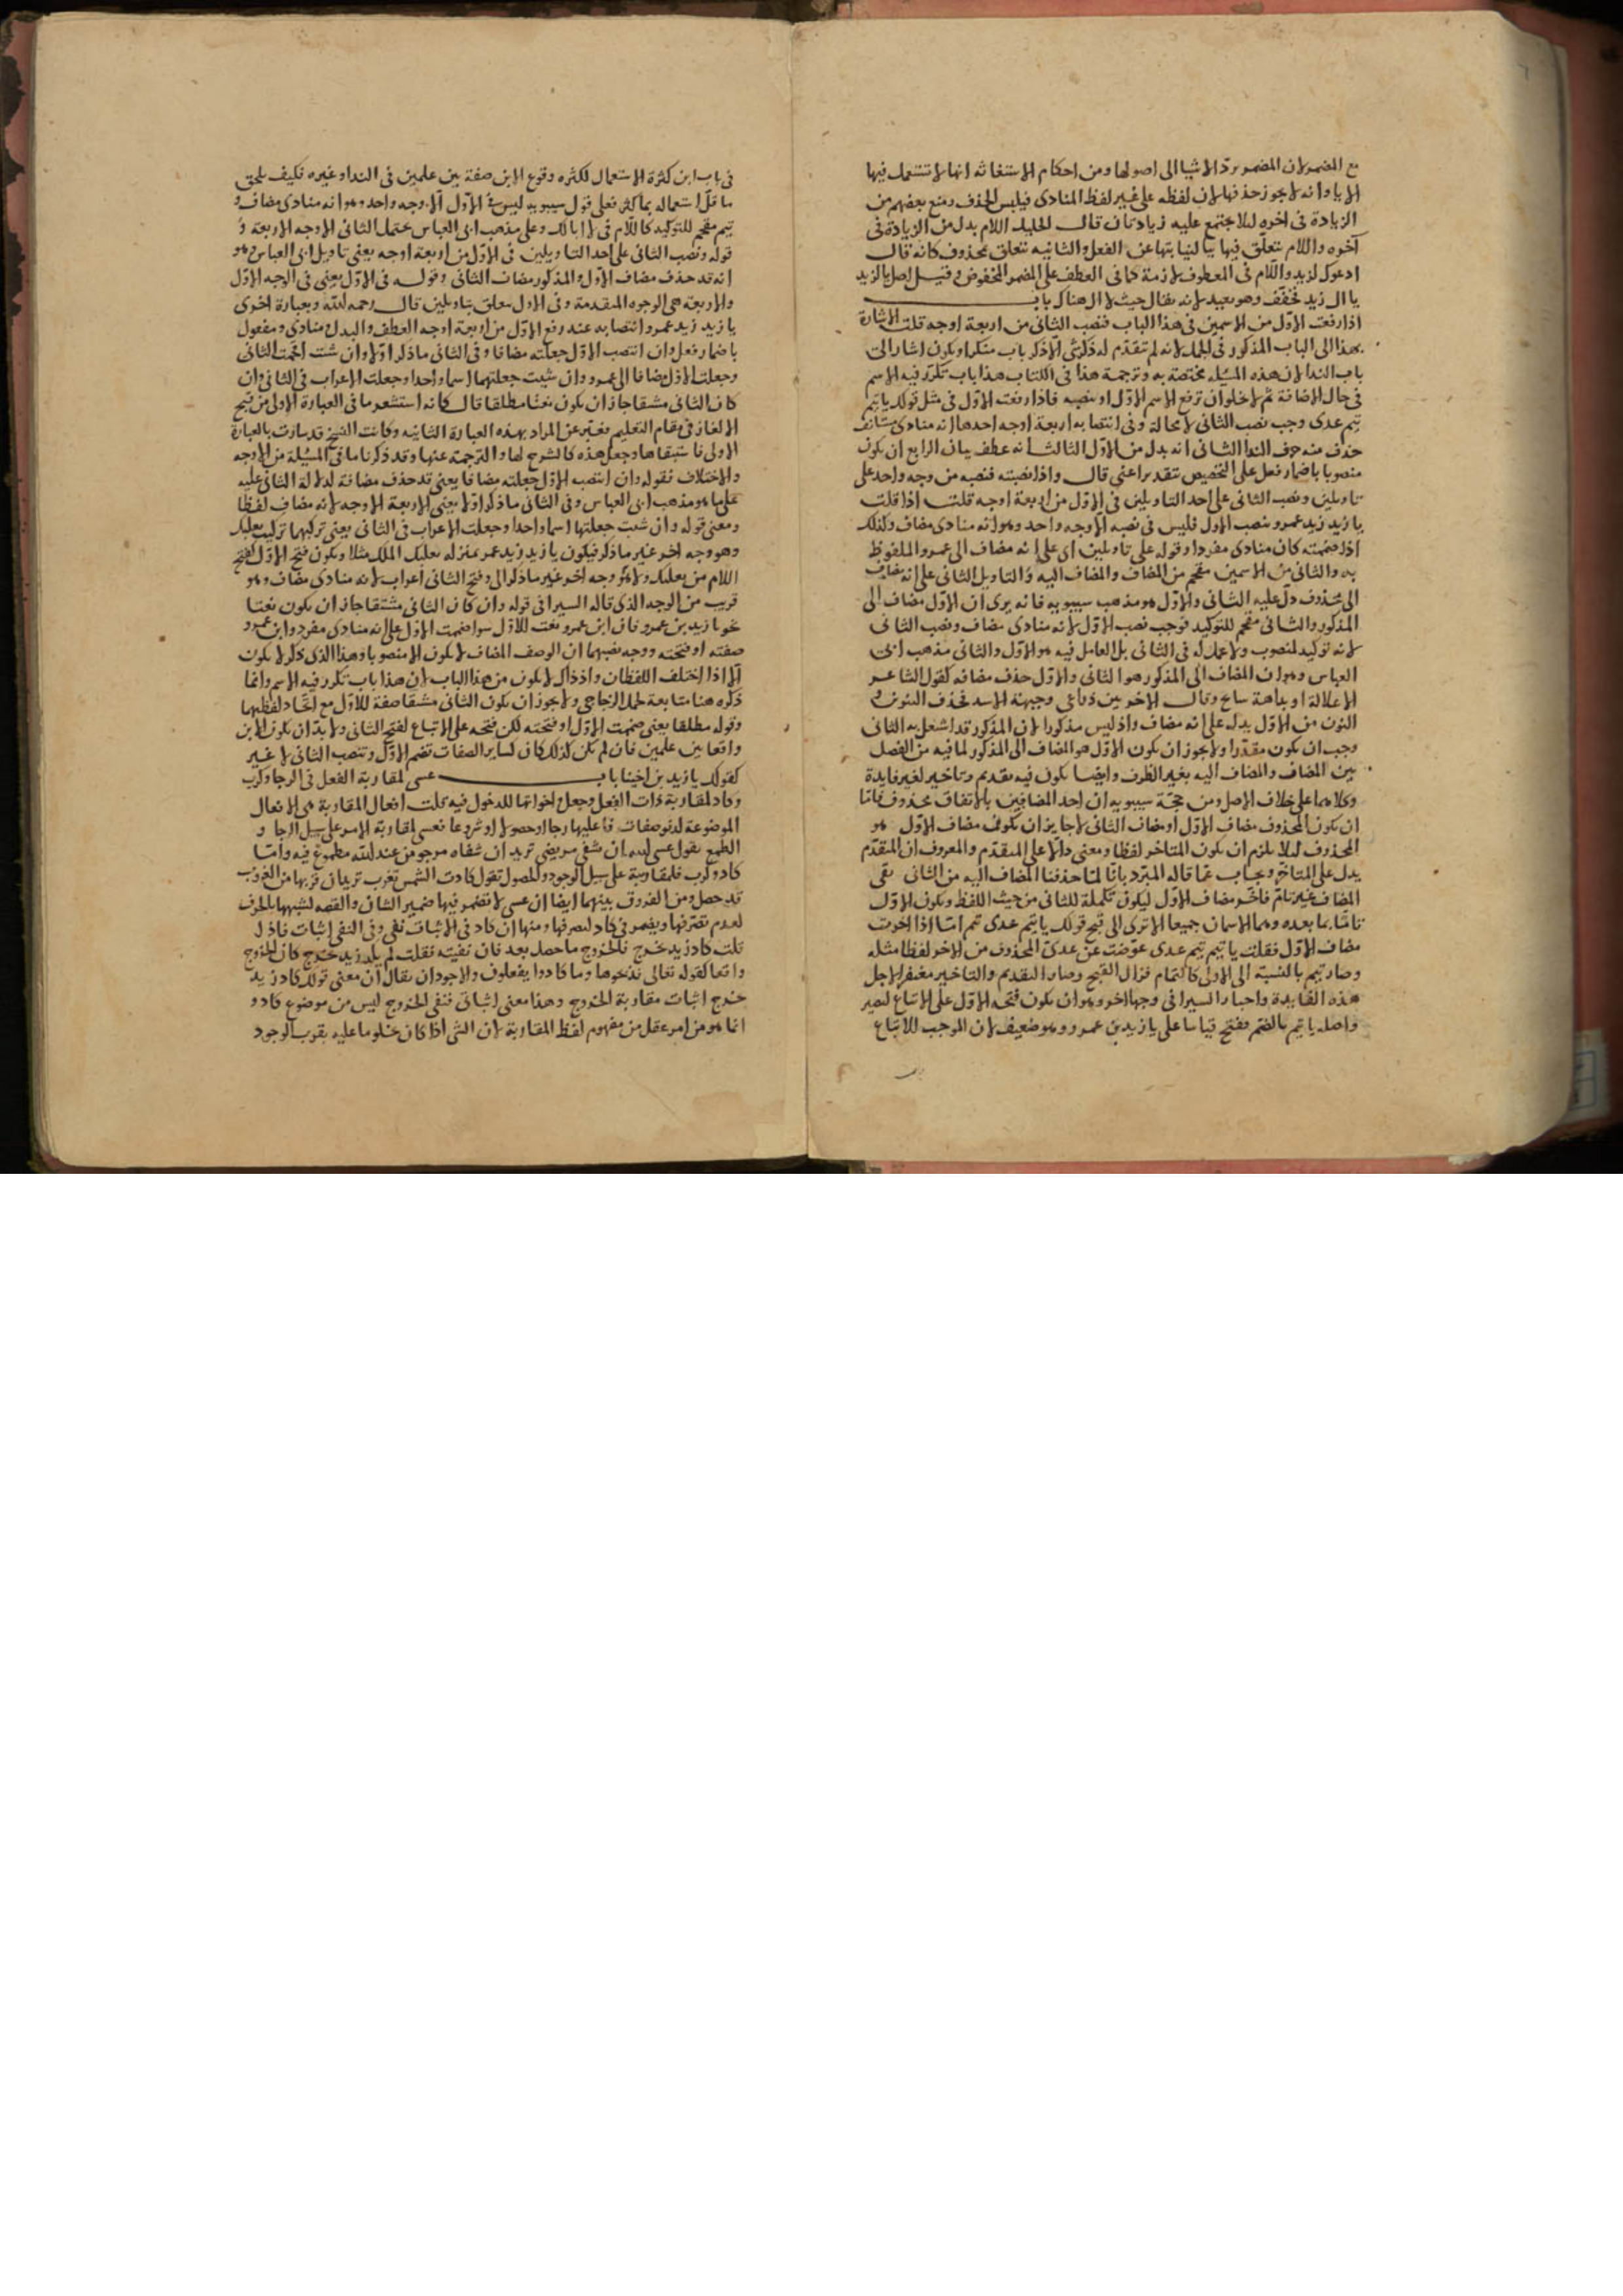 مع المضمر لان المضمر يرد الاشيا الى اصولها ومن احكام الاستغاثه انها لا تستعمل فيها
الا يا وانه لا يجوز حذفها لان لفظه على غير لفظ المنادى فيلبس الحذف ومنع بعضهم من
الزيادة فى اخره ليلا يجتمع عليه زيادتان قال الخليل اللام بدل من الزيادة فى
آخره واللام يتعلق فيها بيا لنيابتها عن الفعل والثانيه تتعلق بمحذوف كانه قال
ادعوك لزيد واللام فى المعطوف لازمة كما فى العطف على المضمر المخفوض وقيل اصل يا لزيد
يا ال زيد فخفف وهو بعيد لانه يقال حيث لا ال هناك باب
اذا رفعت الاول من الاسمين فى هذا الباب فنصب الثانى من اربعة اوجه قلت الاشارة
بهذا الى الباب المذكور فى الجمل لانه لم تتقدم له ذكر شى الا ذكر باب منكرا ويكون اشار الى
باب الندا لان هذه المسئله مختصة به وترجمة هذا فى الكتاب هذا باب تكرر فيه الاسم
فى حال الاضافة ثم لا يخلو ان ترفع الاسم الاول او تنصبه فاذا رفعت الاول فى مثل قولك يا تيم
تيم عدى وجب نصب الثانى لا محالة وفى انتصابه اربعة اوجه احدها انه منادى مستانف
حذف منه حرف الندا الثانى انه بدل من الاول الثالث انه عطف بيان الرابع ان يكون
منصوبا باضمار فعل على التخصيص تقديره اعنى قال واذا نصبته فنصبه من وجه واحد على
تاويلين ونصب الثانى على احد التاويلين فى الاول من اربعة اوجه قلت اذا قلت
يا زيد زيد عمرو بنصب الاول فليس فى نصبه الا وجه واحد وهو انه منادى مضاف وكذلك
اذا ضممته كان منادى مفردا وقوله على تاويلين اى على انه مضاف الى عمرو الملفوظ
به والثانى من الاسمين مقحم من المضاف والمضاف اليه والتاويل الثانى على انه مضاف
الى محذوف دل عليه الثانى والاول هو مذهب سيبويه فانه يرى ان الاول مضاف الى
المذكور والثانى مقحم للتوكيد فوجب نصب الاول لانه منادى مضاف ونصب الثانى
لانه توكيد لمنصوب ولا عمل له فى الثانى بل العامل فيه هو الاول والثانى مذهب ابى
العباس وهو ان المضاف الى المذكور هو الثانى والاول حذف مضافه كقول الشاعر
الا علالة او بداهة سابح وقال الاخر بين ذراعى وجبهة الاسد فحذف التنوين و
النون من الاول يدل على انه مضاف واذ ليس مذكورا لان المذكور قد اشتغل به الثانى
وجب ان يكون مقدرا ولا يجوز ان يكون الاول هو المضاف الى المذكور لما فيه من الفصل
بين المضاف والمضاف اليه بغير الظرف وايضا يكون فيه تقديم وتاخير لغير فايدة
وكلاهما على خلاف الاصل ومن حجة سيبويه ان احد المضافين بالاتفاق محذوف فاما
ان يكون المحذوف مضاف الاول او مضاف الثانى لا جايز ان يكون مضاف الاول هو
المحذوف ليلا يلزم ان يكون المتاخر لفظا ومعنى دالا على المتقدم والمعروف ان المتقدم
يدل على المتاخر ويجاب عما قاله المبرد بانا لما حذفنا المضاف اليه من الثانى بقى
المضاف غير تام فاخر مضاف الاول ليكون تكملة للثانى من حيث اللفظ ويكون الاول
تاما بما بعده وهما الاسمان جميعا الا ترى الى قبح قولك يا تيم عدى تيم اما اذا اخرت
مضاف الاول فقلت يا تيم تيم عدى عوضت عن عدى المحذوف من الاخر لفظا مثله
وصار تيم بالنسبة الى الاولى كالتمام فزال القبح وصار التقديم والتاخير مغتفرا لاجل
هذه الفايدة واجاز السيرافى وجها اخر وهو ان يكون فتحة الاول على الاتباع لتصير
واصله يا تيم بالضم ففتح قياسا على يا زيد بن عمرو وهو ضعيف لان الموجب للاتباع
فى باب ابن كثرة الاستعمال لكثره وقوع الابن صفة بين علمين فى الندا وغيره فكيف يلحق
ما قل استعماله بما كثر فعلى قول سيبويه ليس فى الاول الا وجه واحد وهو انه منادى مضاف و
تيم مقحم للتوكيد كاللام فى لا ابا لك وعلى مذهب ابى العباس يحتمل الثانى الاوجه الاربعة و
قوله ونصب الثانى على احد التاويلين فى الاول من اربعة اوجه يعنى تاويل ابى العباس وهو
انه قد حذف مضاف الاول والمذكور مضاف الثانى وقوله فى الاول يعنى فى الوجه الاول
والاربعة هى الوجوه المتقدمة وفى الاول متعلق بتاويلين قال رحمه الله وبعبارة اخرى
يا زيد زيد عمرو انتصابه عند رفع الاول من اربعة اوجه العطف والبدل منادى ومفعول
باضمار فعل وان انتصب الاول جعلته مضافا وفى الثانى ما ذكر اولا وان شئت اقحمت الثانى
وجعلت الاول مضافا الى عمرو وان شيت جعلتهما اسما واحدا وجعلت الاعراب فى الثانى وان
كان الثانى مشتقا جاز ان يكون نعتا مطلقا قال كانه استشعر ما فى العبارة الاولى من قبح
الالغاز فى مقام التعليم فعبر عن المراد بهذه العبارة الثانيه وكانت النسخ قد سارت بالعبارة
الاولى فاستبقاها وجعل هذه كالشرح لها والترجمة عنها وقد ذكرنا ما فى المسئلة من الاوجه
والاختلاف فقوله وان انتصب الاول جعلته مضافا يعنى قد حذف مضافه لدلالة الثانى عليه
على ما هو مذهب ابى العباس وفى الثانى ما ذكر اولا يعنى الاربعة الاوجه لانه مضاف لفظا
ومعنى قوله وان شيت جعلتهما اسما واحدا وجعلت الاعراب فى الثانى يعنى تركيبهما تركيب بعلبك
وهو وجه اخر غير ما ذكر فيكون يا زيد زيد عمرو بمنزله بعلبك الملك مثلا ويكون فتح الاول كفتح
اللام من بعلبك وهو وجه اخر غير ما ذكر وفتح الثانى اعراب لانه منادى مضاف وهو
قريب من الوجه الذى قاله السيرافى قوله وان كان الثانى مشتقا جاز ان يكون نعتا
نحو يا زيد بن عمرو فان ابن عمرو نعت للاول سوا ضممت الاول على انه منادى مفرد وابن عمرو
صفته او فتحته ووجه نصبهما ان الوصف المضاف لا يكون الا منصوبا وهذا الذى ذكر لا يكون
الا اذا اختلف اللفظان واذ ذاك لا يكون من هذا الباب لان هذا باب تكرر فيه الاسم وانما
ذكره هنا متابعة لجمل الزجاجى ولا يجوز ان يكون الثانى مشتقا صفة للاول مع اتحاد لفظيهما
وقوله مطلقا يعنى ضممت الاول او فتحته لكن فتحه على الاتباع لفتح الثانى ولا بد ان يكون الابن
واقعا بين علمين فان لم يكن كذلك كان كساير الصفات تضم الاول وتنصب الثانى لا غير
كقولك يا زيد بن اخينا باب عسى لمقاربة الفعل فى الرجا وكرب
وكاد لمقاربة ذات الفعل وجعل اخواتها للدخول فيه قلت افعال المقاربة هى الافعال
الموضوعة لدنو صفات فاعليها رجا او حصولا او شروعا فعسى لمقاربة الامر على سبيل الرجا و
الطمع تقول عسى الله ان يشفى مريضى تريد ان شفاه مرجو من عند الله مطموع فيه واما
كاد وكرب فلمقاربة على سبيل الوجود والحصول تقول كادت الشمس تغرب تريد ان قربها من الغروب
قد حصل ومن الفروق بينهما ايضا ان عسى لا تضمر فيها ضمير الشان والقصه لشبهها بالحرف
لعدم تصرفها ويضمر فى كاد لتصرفها ومنها ان كاد فى الاثبات نفى وفى النفى اثبات فاذا
قلت كاد زيد يخرج فالخروج ما حصل بعد فان نفيته فقلت لم يكد زيد يخرج كان الخروج
واقعا كقوله تعالى فذبحوها وما كادوا يفعلون والاجود ان يقال ان معنى قولك كاد زيد
يخرج اثبات مقاربة الخروج وهذا معنى اثباتى فنفى الخروج ليس من موضوع كاد و
انما هو من امر عقل من مفهوم لفظ المقاربة لان الشى اذا كان محكوما عليه بقرب الوجود